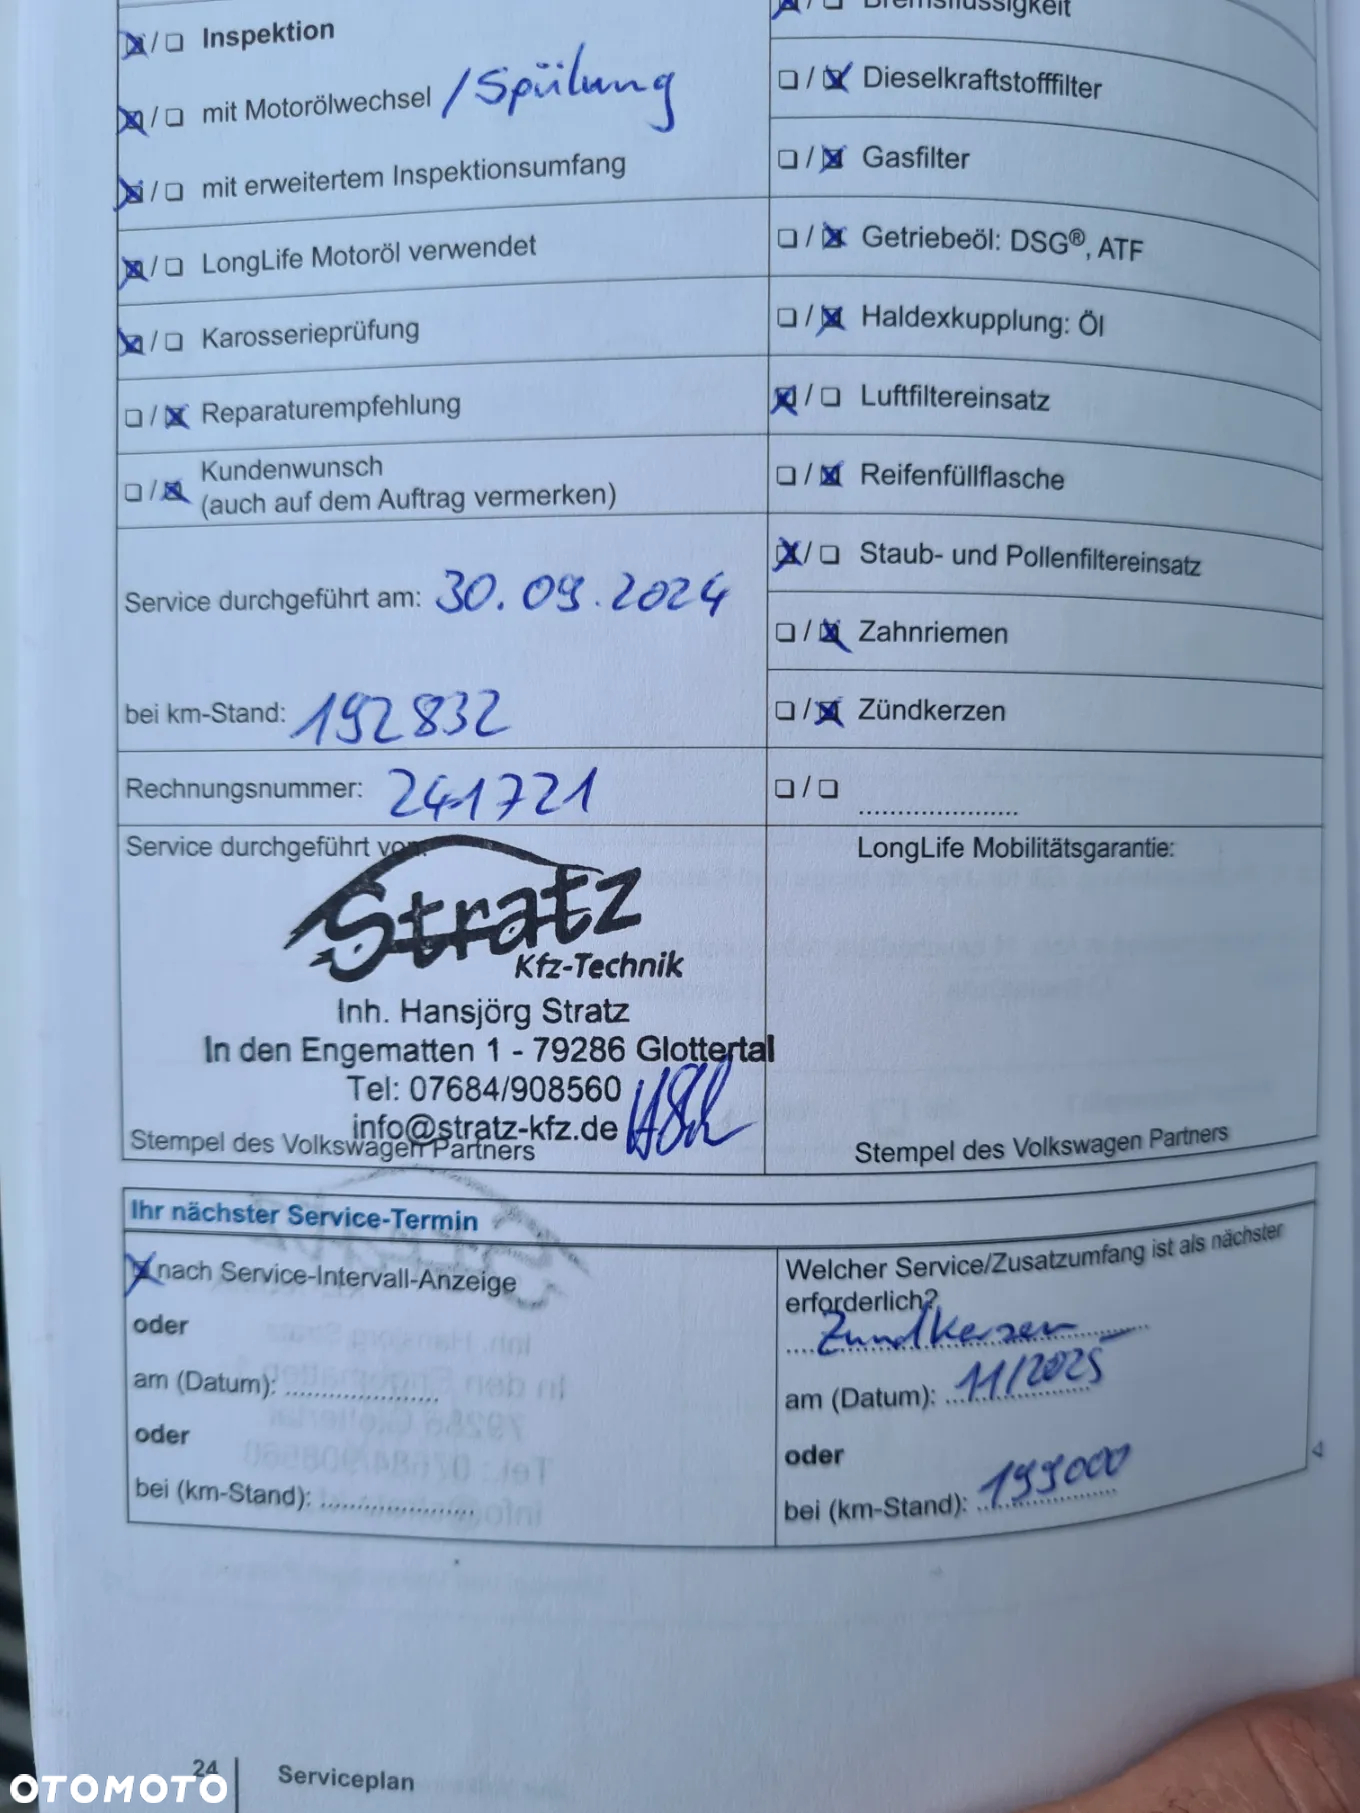 Inspektion
mit Motorölwechsel /Spülung
mit erweitertem Inspektionsumfang
LongLife Motoröl verwendet
Karosserieprüfung
Reparaturempfehlung
Kundenwunsch
(auch auf dem Auftrag vermerken)
Service durchgeführt am: 30.09.2024
bei km-Stand: 192832
Rechnungsnummer: 241721
Service durchgeführt von:
Stratz
Kfz-Technik
Inh. Hansjörg Stratz
In den Engematten 1 - 79286 Glottertal
Tel: 07684/908560
info@stratz-kfz.de
Stempel des Volkswagen Partners
Bremsflüssigkeit
Dieselkraftstofffilter
Gasfilter
Getriebeöl: DSG®, ATF
Haldexkupplung: Öl
Luftfiltereinsatz
Reifenfüllflasche
Staub- und Pollenfiltereinsatz
Zahnriemen
Zündkerzen
LongLife Mobilitätsgarantie:
Stempel des Volkswagen Partners
Ihr nächster Service-Termin
nach Service-Intervall-Anzeige
oder
am (Datum):
oder
bei (km-Stand):
Welcher Service/Zusatzumfang ist als nächster
erforderlich?
Zündkerzen
am (Datum): 11/2025
oder
bei (km-Stand): 199000
24
Serviceplan
OTOMOTO